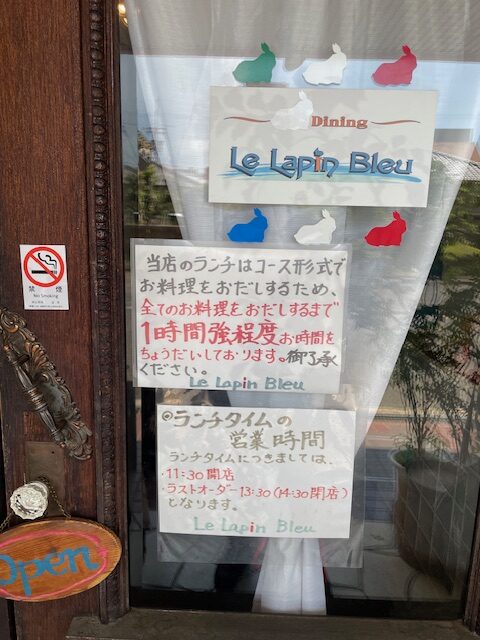 Dining
Le Lapin Bleu
禁煙
No Smoking
当店のランチはコース形式で
お料理をおだしするため、
全てのお料理をおだしするまで
1時間強程度お時間を
ちょうだいしております。御了承
ください。
Le Lapin Bleu
◎ランチタイムの
営業時間
ランチタイムにつきましては、
・11:30開店
・ラストオーダー13:30(14:30閉店)
となります。
Le Lapin Bleu
Open